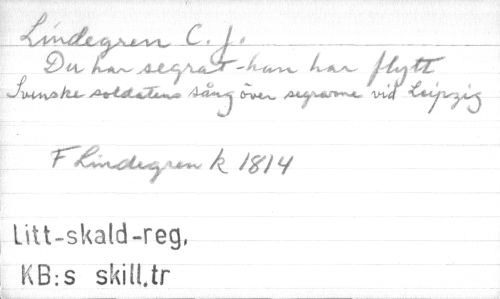 Lindegren C. J.
Du har segrat - han har flytt
Svenske soldatens sång över segrarne vid Leipzig
F Lindegren k 1814
Litt-skald-reg,
KB:s skill.tr